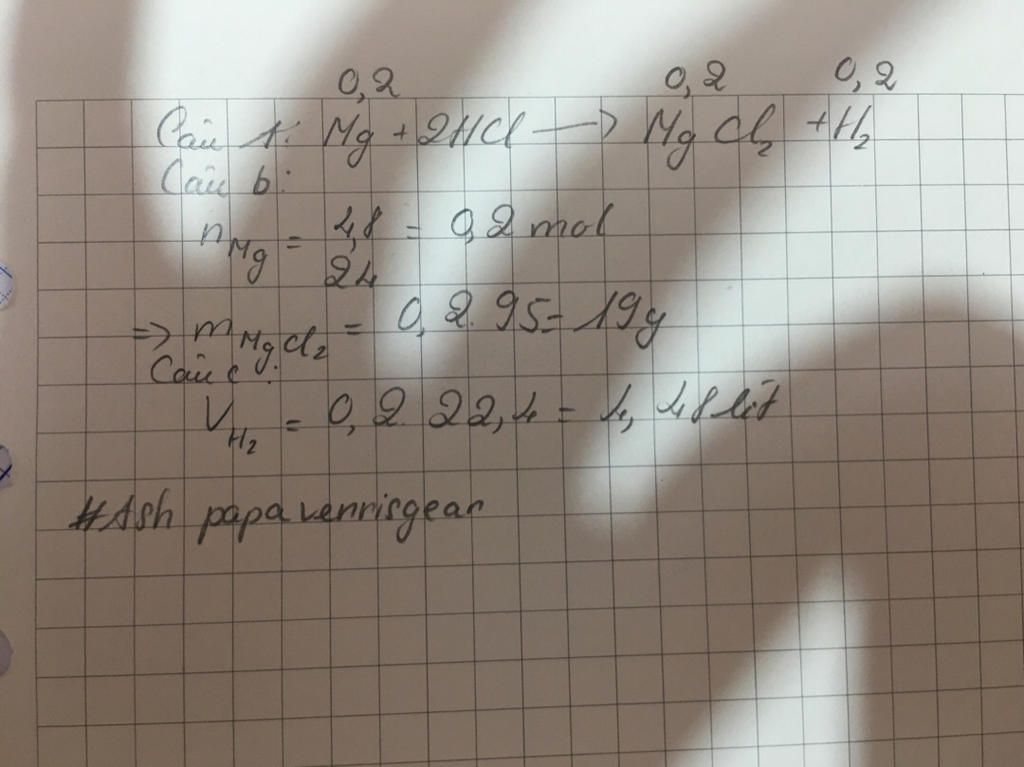 0,2 0,2 0,2
Câu 1: Mg + 2HCl → MgCl₂ + H₂
Câu b:
nMg = 4,8/24 = 0,2 mol
⇒ mMgCl₂ = 0,2.95 = 19g
Câu c:
VH₂ = 0,2.22,4 = 4,48 lít
#Ash papavenrisgear